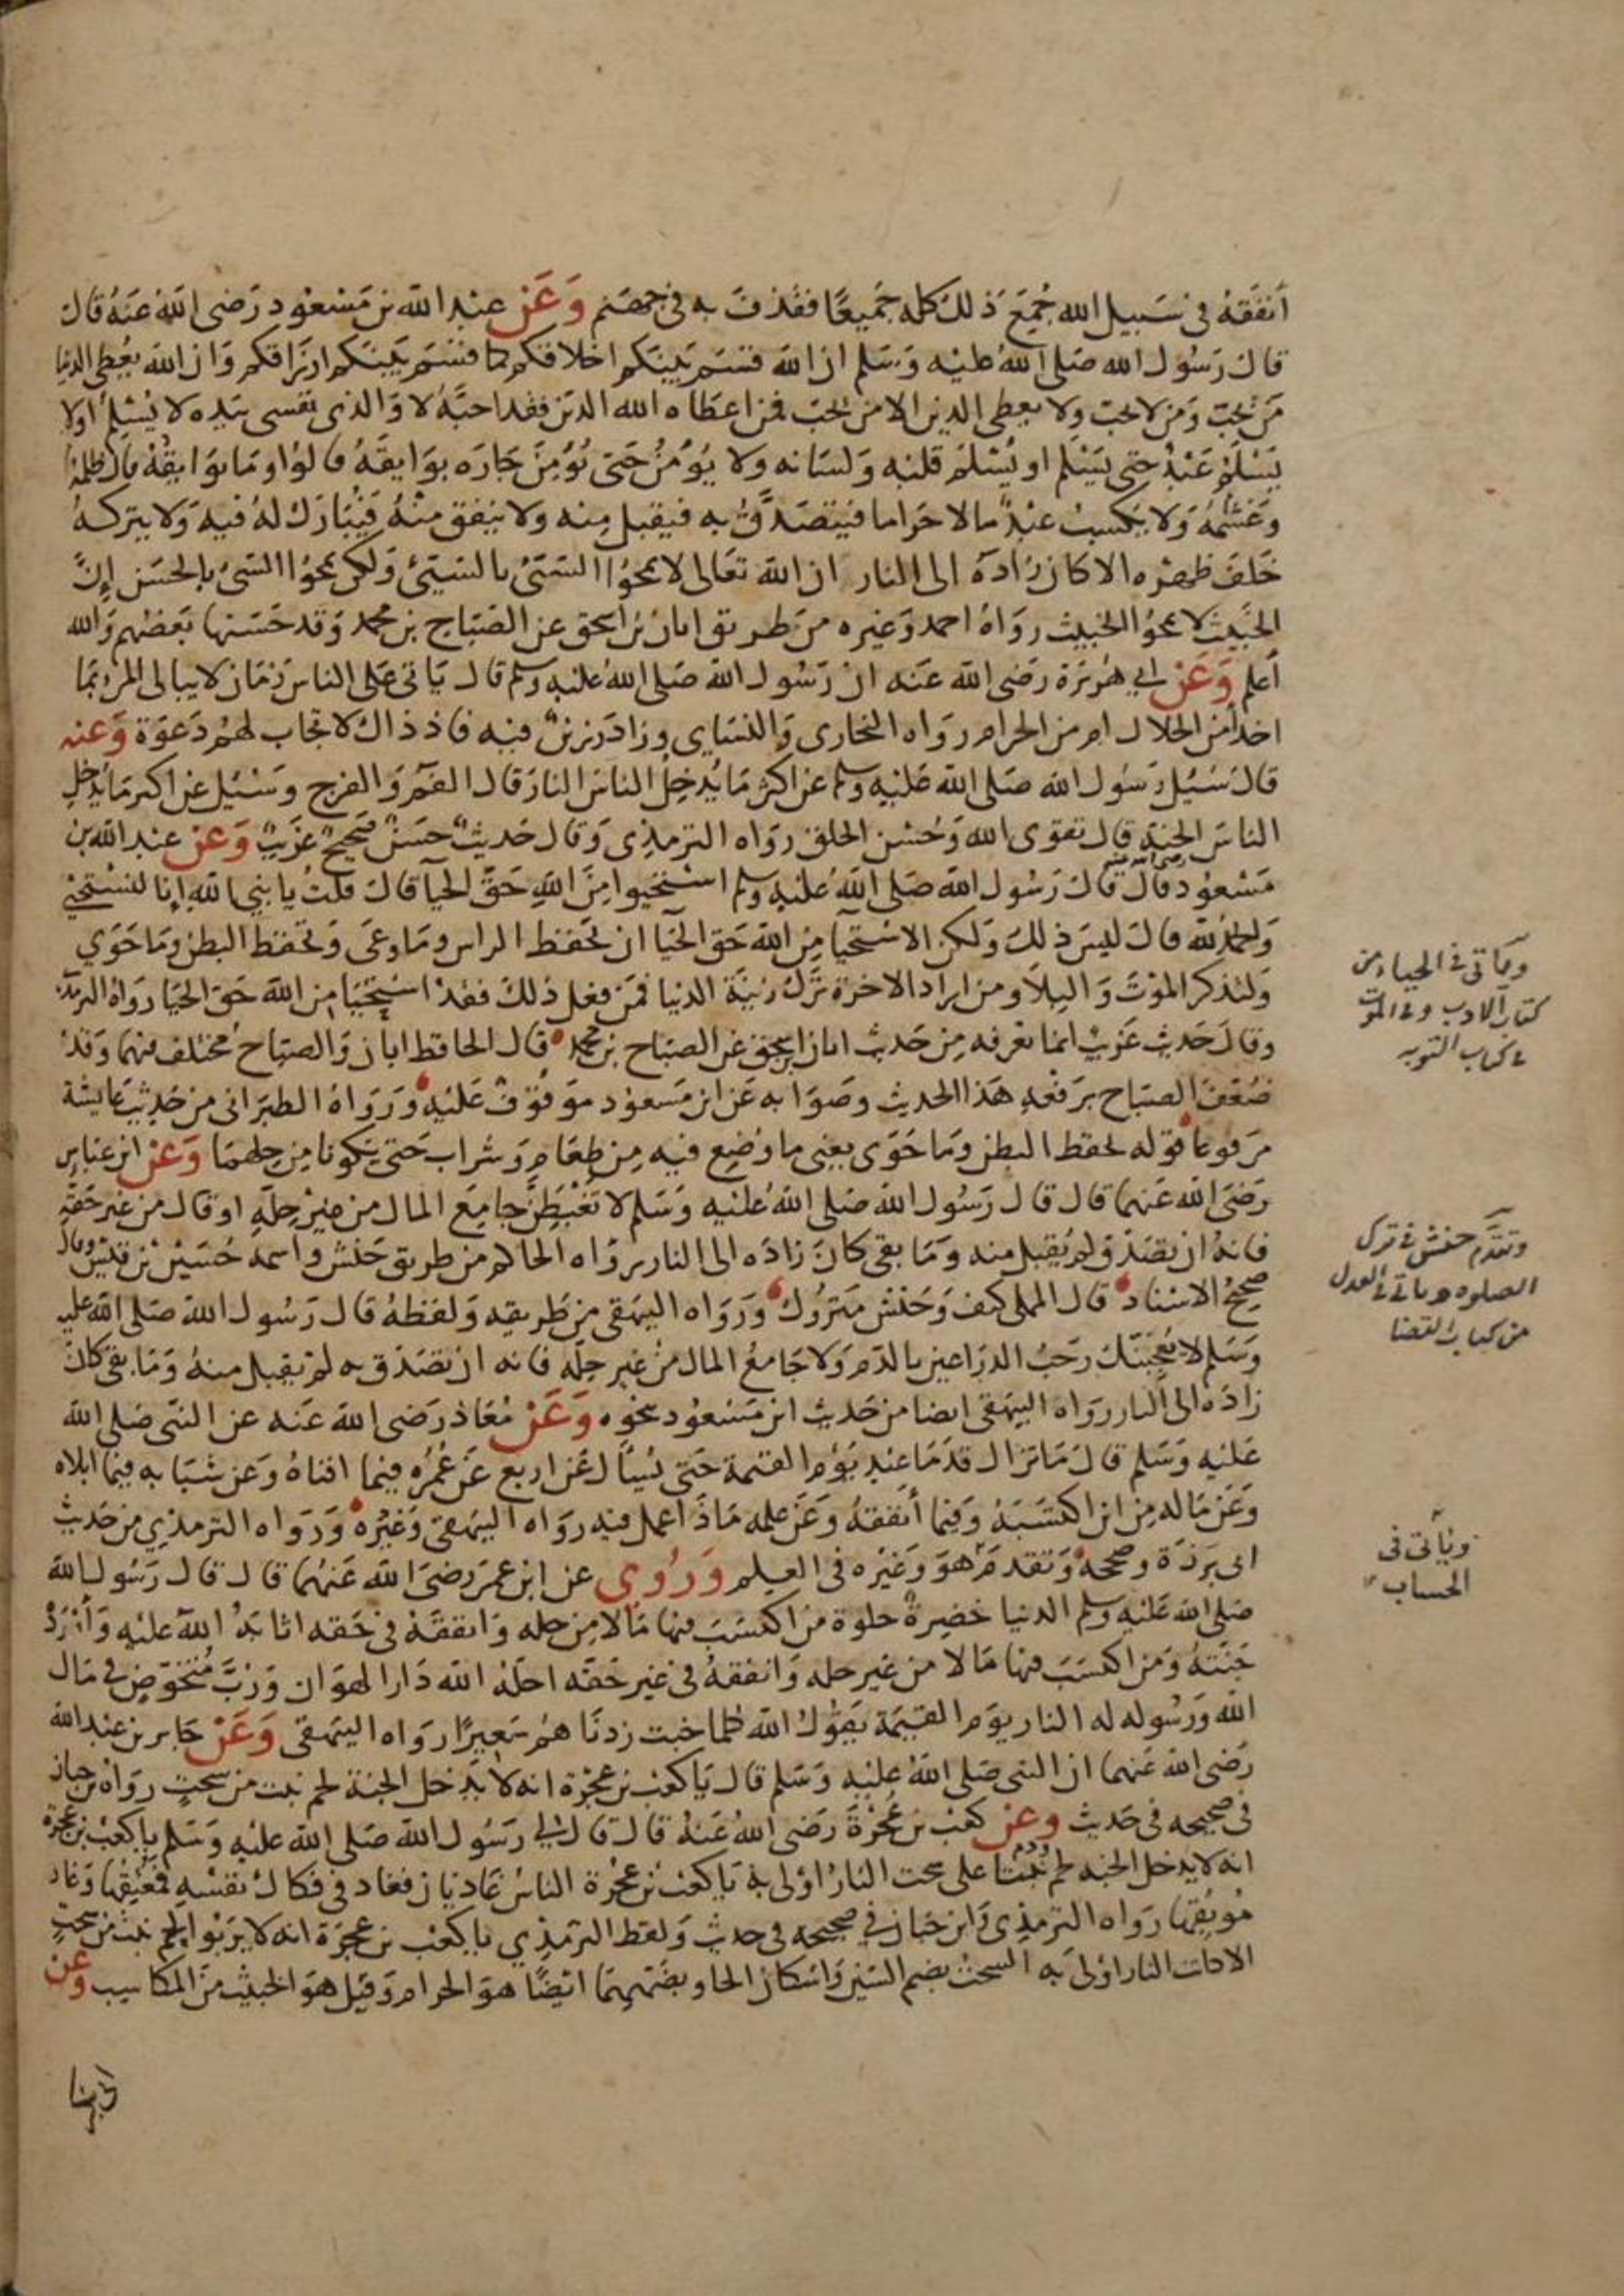 أنفقه فى سبيل الله جُمِعَ ذلك كله جَميعًا فقذف به فى جهنم وَعَن عبد الله بن مَسْعود رَضى الله عَنهُ قال
قال رَسُول الله صَلى الله عليه وَسَلم ان الله قسَم بَينكم اخلاقكم كما قسَم بَينكم ارزاقكم وَان الله يُعطى الدنيا
مَن يُحب وَمن لا يحب ولا يعطى الدين الا من يحب فمن اعطاه الله الدين فقد احبَّهُ لا وَالذى نفسى بيَده لا يُسْلِمُ اولا
يَسْلَمُ عَبْدٌ حتى يَسْلم او يُسْلمَ قلبه وَلسَانه ولا يُؤمنُ حَتى يُؤمِنَ جَارَه بوَايقَهُ قالوُا وَمَا بوَايقُهُ قال ظلمهُ
وَغشمُهُ وَلا يَكسبُ عبْدٌ مالا حَراما فيتصَدقُ به فيقبل مِنه ولا ينفق منْهُ فيُبَارَك لهُ فيهِ وَلا يتركهُ
خَلفَ ظهره الا كان زَادَهُ الى النار ان الله تعَالى لا يمحُوا السَّيئ بالسَّيئ وَلكن يمحُوا السَّيئ بالحسَن إنَّ
الخَبيث لا يمحُوا الخبيث رواهُ احمد وَغيره من طريق ابان بن اسحق عن الصَبَّاح بن محمد وَقد حَسَنها بَعضهُم وَالله
أعلم وَعَنْ ابى هُريْرَة رَضى الله عنه ان رَسُول الله صَلى الله عَليْه وسلم قال يَاتى عَلى الناس زمَان لا يبالى المرءُ بمَا
اخذ أمن الحلال ام من الحرام روَاه البخارى وَالنسَاى وزادَ رَزينٌ فيه فاذ ذاك لا تجاب لهُم دَعوَة وَعنه
قال سُئِل رَسُول الله صَلى الله عَليْهِ وسلم عن اكثر مَا يُدخِلُ الناسَ النار قال الفمُ وَالفرج وسُئل عن اكثر مَا يُدخِل
الناسَ الجنة قال تقوى الله وَحُسْن الخلق روَاه الترمذى وَقال حَديث حسَنٌ صَحيحٌ غَريبٌ وَعن عبد الله بن
مَسْعوُد رضى الله عنه قال قال رَسُول الله صَلى الله عَليْه وسلم اسْتحيُوا مِنَ اللهِ حَقَّ الحيآ قال قلتُ يا نبى الله إنا لنستحى
وَالحمد لله قال ليسَ ذلك وَلكن الاستحيَآ مِن الله حَق الحيا ان تحفظ الراس ومَا وعَى وَتحفظ البطن ومَا حَوَى
وَلتذكر الموْتَ وَالبِلا ومن اراد الاخرة تَرك زينَة الدنيا فمَن فعل ذلك فقدْ اسْتحيَا من الله حَق الحيَا رواهُ الترمذى
وقالَ حَديث غَريب انما نعرفه مِن حَديث ابان بن اسحق عن الصَباح بن محمد قال الحافظ ابان وَالصبَاح مختلف فيهما وَقدْ
ضعّفَ الصبَاح برَفعِهِ هَذا الحديث وصَوَابه عَن ابن مَسعوُد موقوفٌ عَليْهِ وَرَوَاهُ الطبرَانى من حَديث عَايشة
مَرفوعًا قوله تحفظ البطن ومَا حَوَى يعنى ما وُضِع فيه مِن طعَامٍ وَشراب حَتى يَكونا مِن حِلهمَا وَعَنْ ابن عبَاس
رَضىَ الله عَنهما قال قال رَسُول الله صَلى الله عَليْه وَسَلم لا تغْبَطنَّ جامِعَ المال من غيْرْ حِلِّهِ اوقال من غير حَقِّهِ
فانهُ ان تصَدَّق لم يُقبل منه وَمَا بقى كان زادَه الى النار روَاه الحاكم من طريق حَنش واسمه حُسَيْن بن قيسٍ وقال
صحيحُ الاسْناد قال المملى كيف وَحَنش متروُك وَرَوَاه البيهقى من طَريقه وَلفظهُ قال رَسُول الله صَلى الله عليه
وسَلم لا يُعجبنّك رَحبُ الذرَاعين بالدّم وَلا جَامعُ المال منْ غير حِلّه فانه ان تصَدق به لم يُقبل منهُ وَمَا بقى كان
زادَه الى النار روَاه البيهقى ايضا من حَديث ابن مَسْعوُد بنحوِه وَعَنْ مُعَاذ رَضى الله عَنه عن النبى صَلى الله
عَليْه وَسَلم قال مَا تزال قدَمَا عَبدٍ يَوْم القيمة حَتى يُسْأل عَن اربع عَن عُمُرِه فيما افناهُ وَعَن شبَابه فيمَا ابلاه
وعَن مَاله مِن اين اكتسَبَهُ وَفيما أنفقهُ وَعَن علمه مَاذا عمل فيه روَاه البيهقى وَغيْرُه وَرَوَاه الترمذى من حَديث
ابى بَرزة وصححهُ وتقدمَ هوَ وَغيْره فى العِلم وَرُوِى عن ابن عمَر رضىَ الله عَنهُما قال قال رَسُول الله
صَلى الله عَليْه وسلم الدنيا خضِرةٌ حلوة من اكتسَبَ فيها مَالا مِن حله وَانفقهُ فى حَقه اثابَهُ اللهُ عليْهِ وَأوْرَدَهُ
جَنتهُ وَمَن اكتسَبَ فيها مَالا من غير حله وَانفقهُ فى غير حَقه احلهُ الله دَار الهوَان وَرُبَّ مُتخَوّضٍ فى مَال
الله وَرَسُوله له النار يوم القيمة يَقولُ الله كلما خبت زدنَاهُم سَعِيرًا روَاه البيهقى وَعَنْ جَابر بن عبد الله
رَضى الله عَنهمُا ان النبى صَلى اللهُ عَليْهِ وَسَلم قال يَا كعْبَ بن عُجرَة انه لا يَدخل الجنة لحم نبت من سُحتٍ روَاه بن حبان
فى صَحيحه فى حَديث وعن كعْب بن عُجْرَةَ رَضى اللهُ عَنهُ قال قال لى رَسُول الله صَلى الله عليْهِ وَسَلم يا كَعْبَ بن عُجْرَة
انه لا يدخل الجنه لحم ودَم نبَتا على سُحت النارُ اوْلى به يَا كعْبَ بن عُجْرَة الناسُ غَاديَان فغاد فى فكاك نفسِهِ فمُعْتِقها وَغاد
مُوبِقها رَوَاه الترمذى وَابن حبَان فى صَحيحه فى حديث وَلفظ الترمذى يا كعْب بن عُجرَة انه لا يَربوُا لحم نبَت من سحتٍ
الا كانت النار اوْلى به السحْتُ بضم السّين وَاسْكان الحا وبضمهمَا ايضًا هو الحرام وَقيل هوَ الخبيث من المكاسِب وعَن
ويأتى فى الحياء من
كتاب الادب وفى الموت
فى كتاب التوبه
وتقدّم حنش فى ترك
الصلوه وياتى فى العدل
من كتاب القضا
ويأتى فى
الحساب